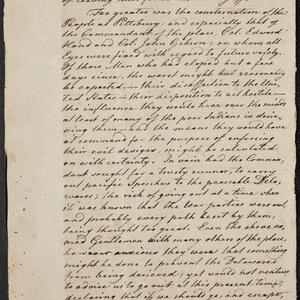 Too greater was the consternation of the
People at Pittsburg, and especially that of
the Commandant of the place, Col. Edward
Hand and Col. John Gibson, on whom all
Eyes were fixed with regard to future safety.
Of those Men who had eloped but a few
days since, the worst might but reasonably
be expected — their disaffection to the Uni-
ted States — their disposition to
the influence they would have over the minds
at least of many of the poor Indians in decei-
ving them — and the means they would have
at command for the purpose of enforcing
their evil designs, might be calculated
on with certainty. In vain had the Comman-
dant sought for a trusty runner, to carry
out pacific Speeches to the peaceable Dela-
wares; the risk of going out at a time, when
it was known that the War parties were out,
and probably every path beset by them,
being thought too great. Even the above na-
med Gentlemen with many others of the place,
however anxious they were that something
might be done to preserve the Delawares
from being deceived; yet would not venture
to advise us to go out at this present time;
declaring that if we should go, and escape